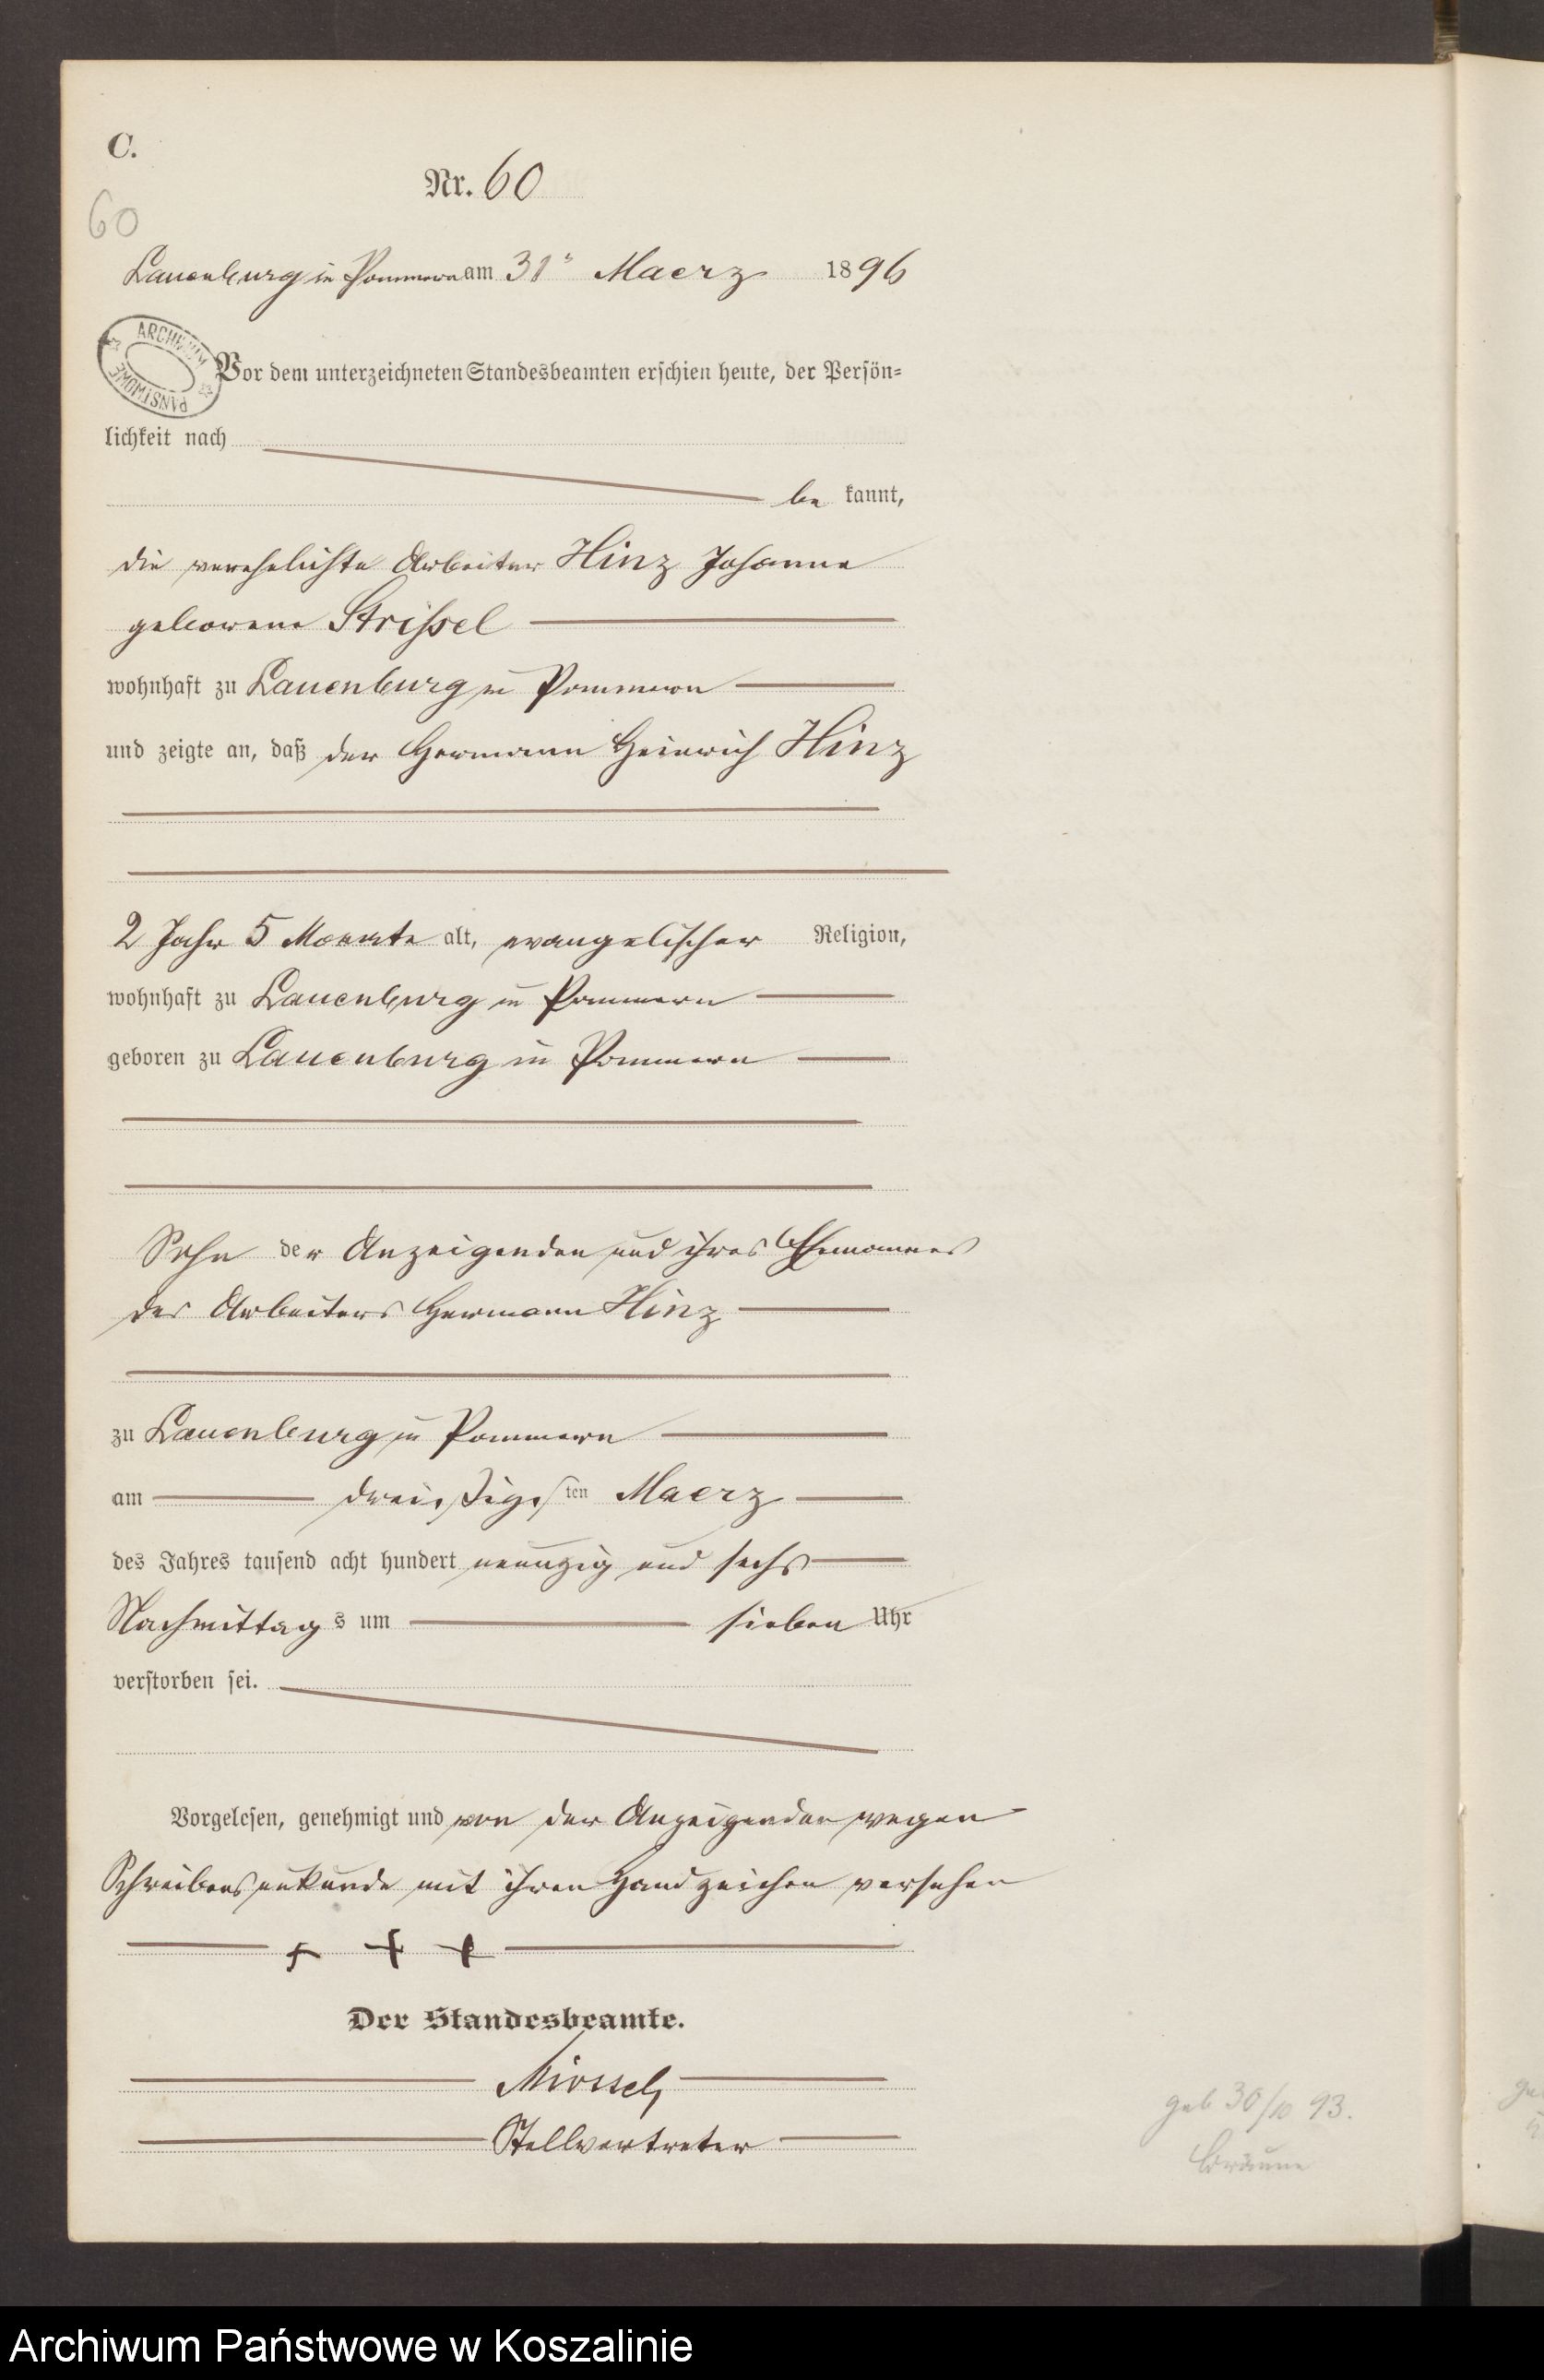 C.
Nr. 60
60
Lauenburg in Pommern am 31ᵗ Maerz 1896
ARCHIWUM PAŃSTWOWE
Vor dem unterzeichneten Standesbeamten erschien heute, der Persön=
lichkeit nach
be kannt,
die verehelichte Arbeiter Hinz Johanne
geborene Strissel
wohnhaft zu Lauenburg in Pommern
und zeigte an, daß der Hermann Heinrich Hinz
2 Jahr 5 Monate alt, evangelischer Religion,
wohnhaft zu Lauenburg in Pommern
geboren zu Lauenburg in Pommern
Sohn der Anzeigenden und ihres Ehemannes
des Arbeiters Hermann Hinz
zu Lauenburg in Pommern
am dreißigsten Maerz
des Jahres tausend acht hundert neunzig und sechs
Nachmittags um sieben Uhr
verstorben sei.
Vorgelesen, genehmigt und von der Anzeigenden wegen
Schreibensunkunde mit ihren Handzeichen versehen
+ + +
Der Standesbeamte.
Stellvertreter
geb 30/10 93.
Bräune
Archiwum Państwowe w Koszalinie